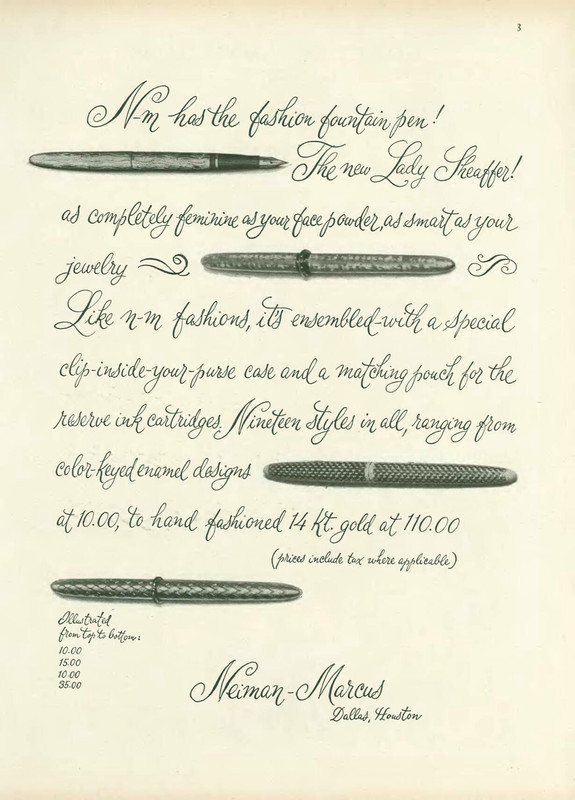 3
N-m has the fashion fountain pen!
The new Lady Sheaffer!
as completely feminine as your face powder, as smart as your
jewelry
Like n-m fashions, it's ensembled-with a special
clip-inside-your-purse case and a matching pouch for the
reserve ink cartridges. Nineteen styles in all, ranging from
color-keyed enamel designs
at 10.00, to hand fashioned 14 kt. gold at 110.00
(prices include tax where applicable)
Illustrated
from top to bottom:
10.00
15.00
10.00
35.00
Neiman-Marcus
Dallas, Houston